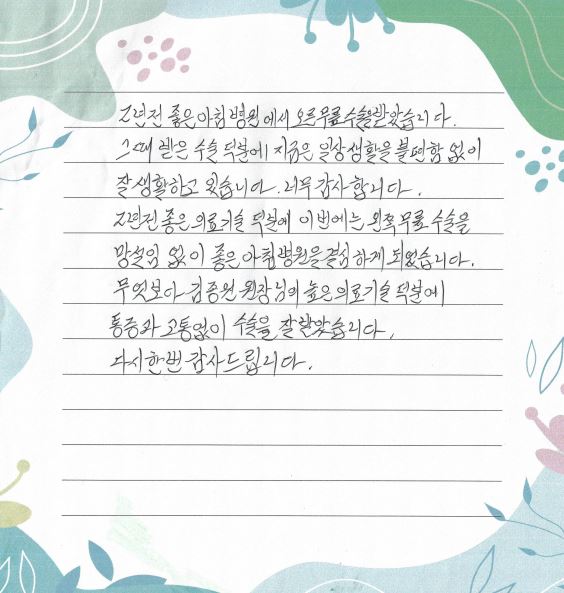 2년전 좋은아침병원에서 오른무릎수술을받았습니다.
그때 받은 수술 덕분에 지금은 일상생활을 불편함 없이
잘 생활하고 있습니다. 너무 감사합니다.
2년전 좋은의료기술 덕분에 이번에는 왼쪽무릎 수술을
망설임 없이 좋은아침병원을결심하게 되었습니다.
무엇보다 김종원 원장님의 높은의료기술 덕분에
통증과 고통없이 수술을 잘 받았습니다.
다시한번 감사드립니다.